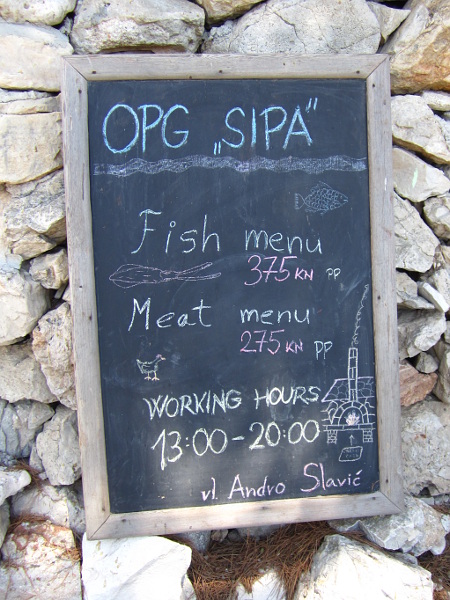 OPG „SIPA“
Fish menu
375 KN PP
Meat menu
275 KN PP
WORKING HOURS
13:00-20:00
vl. Andro Slavić